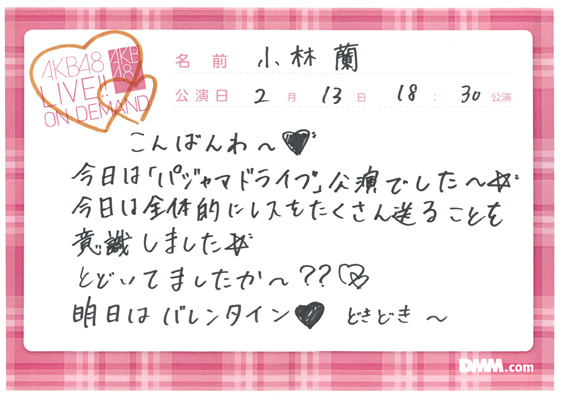 AKB48
LIVE!!
ON DEMAND
AKB
48
名前 小林蘭
公演日 2月13日 18:30公演
こんばんわ〜♥
今日は「パジャマドライブ」公演でした〜☆
今日は全体的にレスをたくさん送ることを
意識しました☆
とどいてましたか〜??♡
明日はバレンタイン♥ どきどき〜
DMM.com